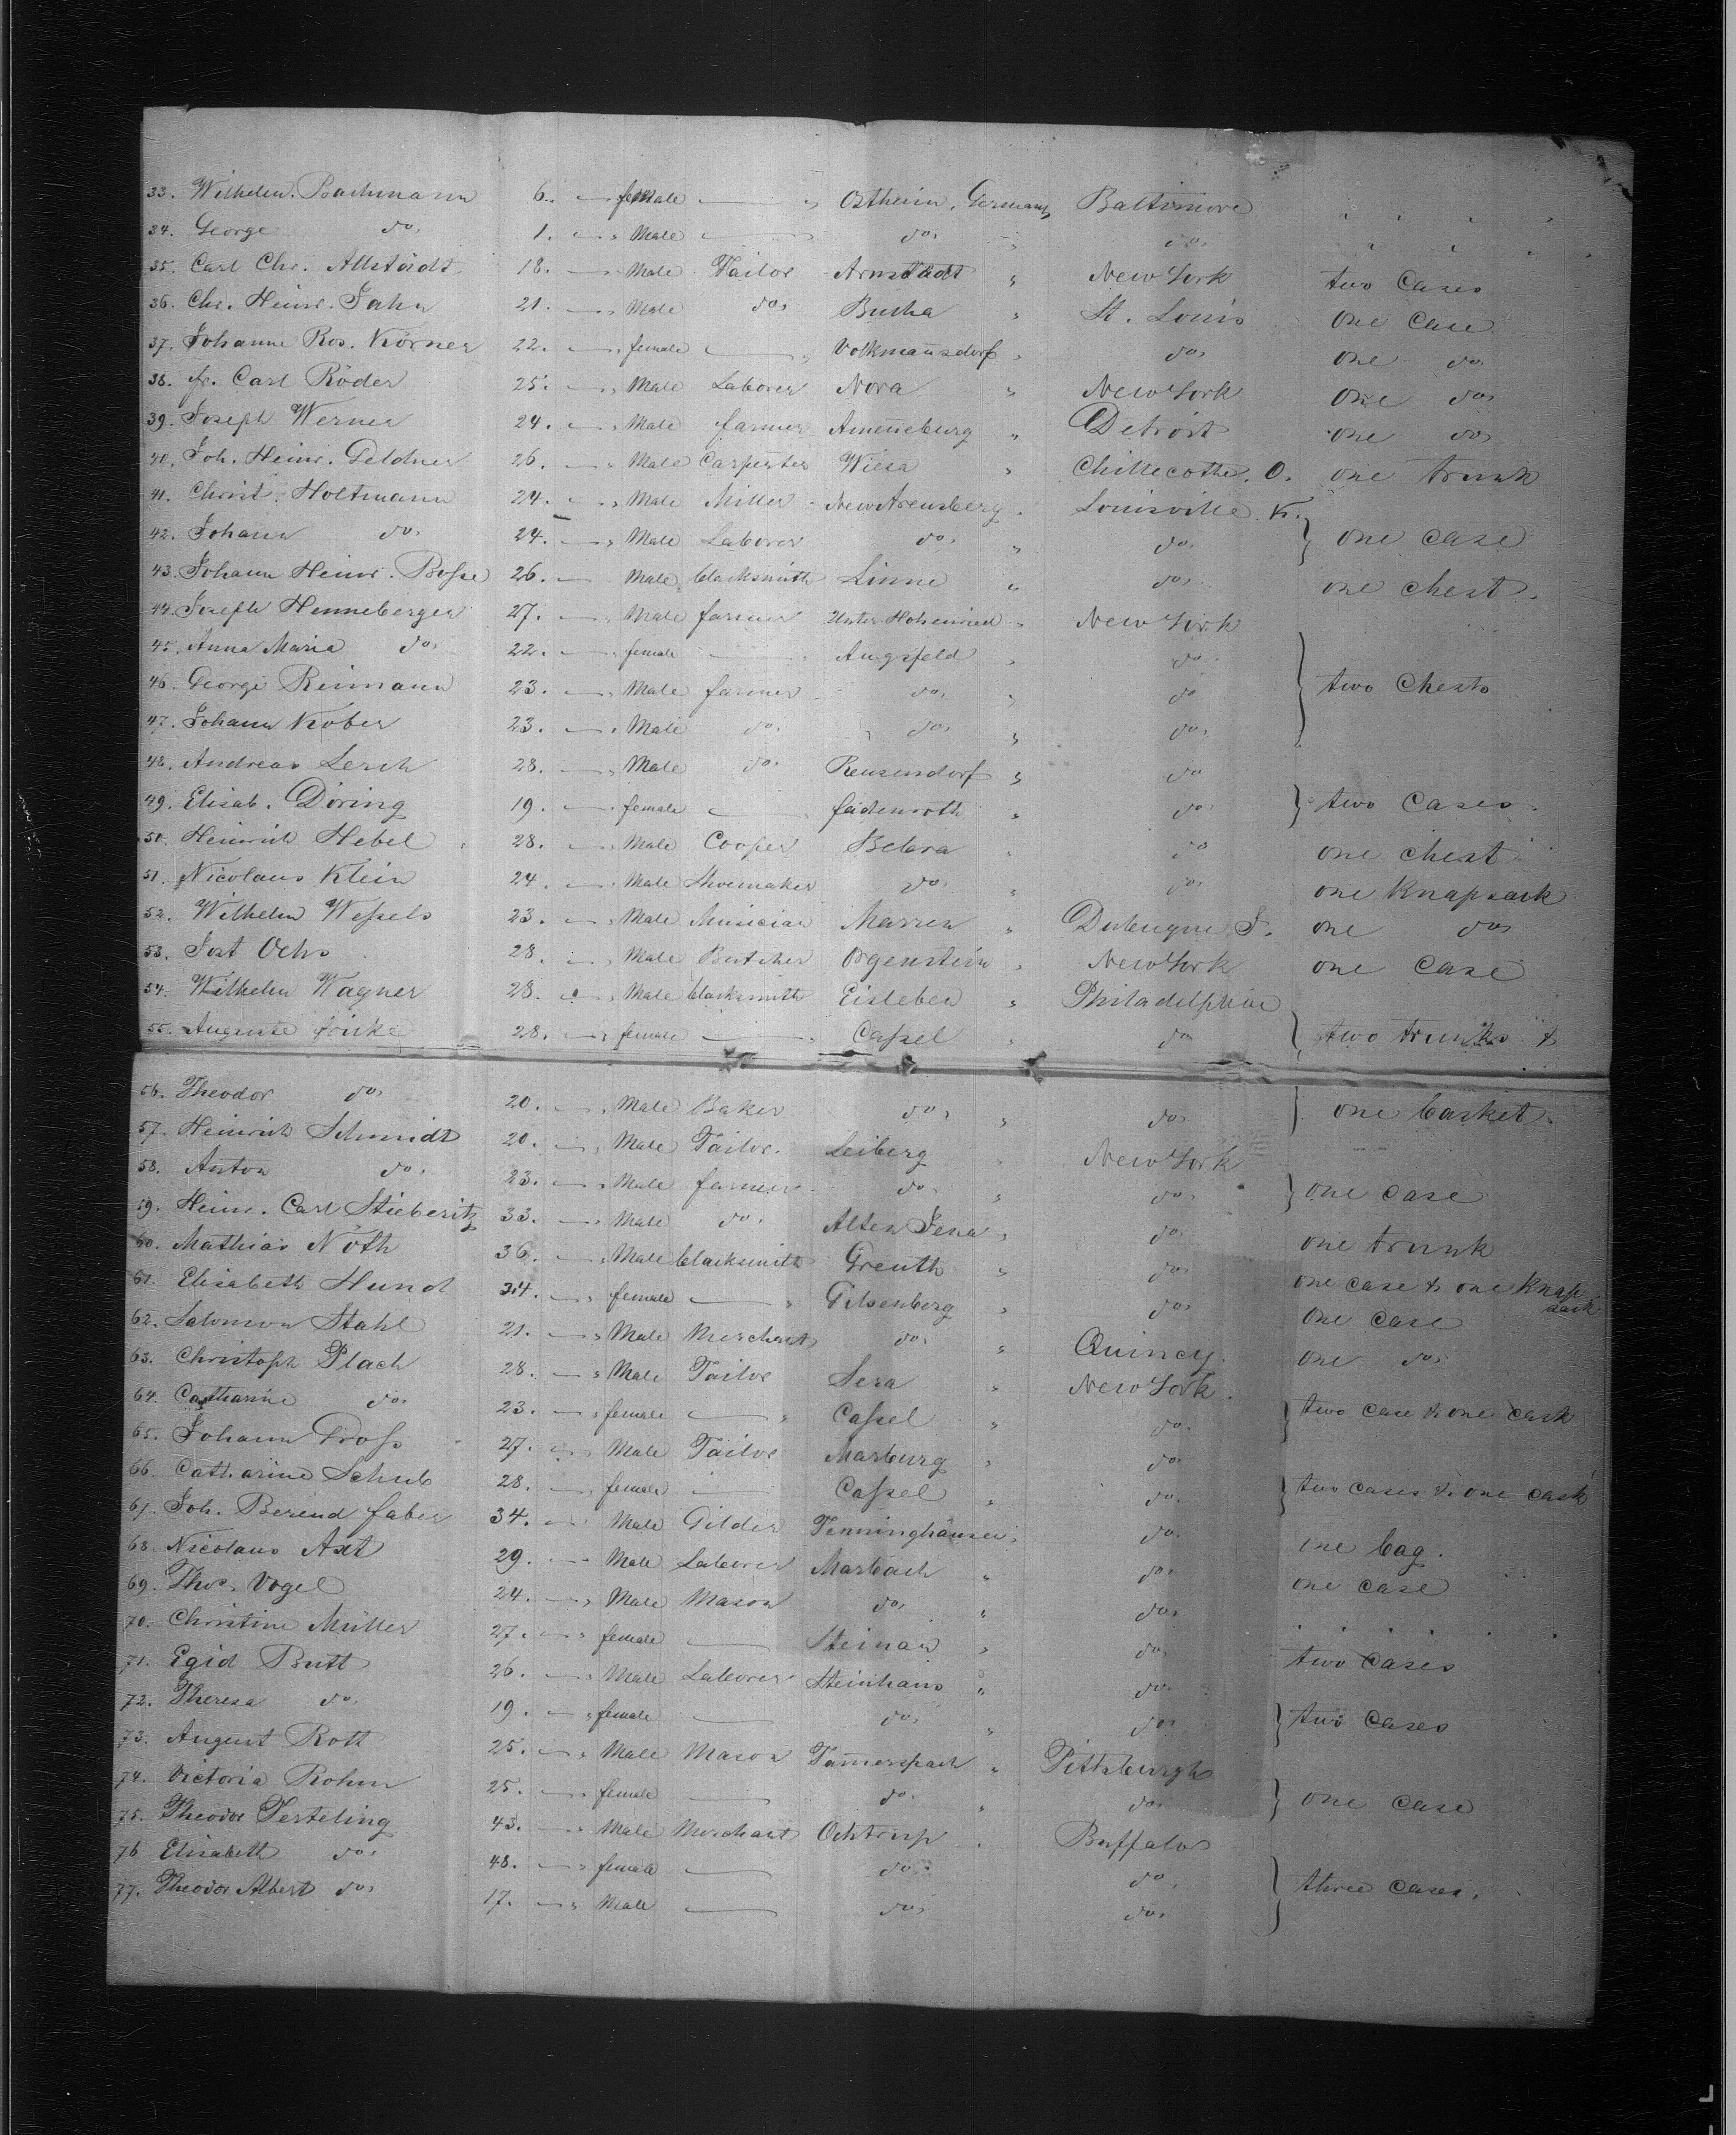 33. Wilhelm. Bachmann 6. — female — " Ostheim, Germany Baltimore " " " "
34. George do. 1. — " Male — " do. " do. " " " "
35. Carl Chr. Allstädt 18. — Male Tailor Arnstadt " New York two Cases
36. Chr. Heinr. Jahn 21. — " Male do. Bucha " St. Louis one Case
37. Johanne Ros. Körner 22. — " female — " Volkmannsdorf " do. one do.
38. fr. Carl Röder 25. — " Male Laborer Nora " New York one do.
39. Joseph Werner 24. — " Male farmer Ameneburg " Detroit one do.
40. Joh. Heinr. Geldner 26. — " Male Carpenter Wiesa " Chillecothe. O. one trunk
41. Christ. Holtmann 24. — " Male Miller New Arensberg " Louisville. K.
42. Johann do. 24. — " Male Laborer do. " do. } one case
43. Johann Heinr. Bosse 26. — Male blacksmith Linne " do. one chest.
44. Joseph Henneberger 27. — " Male farmer Unter Hohenried " New York
45. Anna Maria do. 22. — " female — Augsfeld " do.
46. George Reimann 23. — " Male farmer do. " do } two Chests
47. Johann Kober 23. — " Male do. do. " do.
48. Andreas Lerch 28. — " Male do. Reusendorf " do
49. Elisab. Döring 19. — female — " feidenroth " do. } two Cases.
50. Heinrich Hebel 28. — " Male Cooper Bebra " do one chest
51. Nicolaus Klein 24. — " Male Shoemaker do. " do. one Knapsack
52. Wilhelm Wessels 23. — " Male Musician Marren " Dubuque J. one do.
53. Jost Ochs 28. — " Male Butcher Orgenstein " New York one Case
54. Wilhelm Wagner 28. — " Male blacksmith Eisleben " Philadelphia
55. Auguste fricke 28. — " female — " Cassel " do. } two trunks &
56. Theodor do. 20. — " Male Baker do. " do. } one basket.
57. Heinrich Schmidt 20. — " Male Tailor. Leiberg " New York
58. Anton do. 23. — " Male farmer do. " do. } one case
59. Heinr. Carl Stieberitz 33. — " Male do. Alten Jena " do. one trunk
60. Mathias Nöth 36. — " Male blacksmith Greuth " do. one case & one Knapsack
61. Elisabeth Hund 34. — " female — " Gilsenberg " do. one case
62. Salomon Stahl 21. — " Male Merchant do. " Quincy. one do.
63. Christoph Plach 28. — " Male Tailor Lera " New York.
64. Catharine do. 23. — " female — " Cassel " do. } two case & one cask
65. Johann Gross 27. — " Male Tailor Marburg " do.
66. Catharine Schub 28. — " female — Cassel " do. } two cases & one cask
67. Joh. Berend faber 34. — " Male Gilder Tenninghausen " do. one bag.
68. Nicolaus Axt 29. — Male Laborer Marbach " do. one case
69. Thos. Vogel 24. — " Male Mason do. " do. " " " " " "
70. Christine Müller 27. — " female — Steinau " do. two cases
71. Egid Butt 26. — " Male Laborer Steinhaus " do.
72. Theresa do. 19. — " female — do. " do. } two cases
73. August Rott 25. — " Male Mason Tannerspach " Pittsburgh
74. Victoria Rohm 25. — " female — do. " do. } one case
75. Theodor Terteling 43. — " Male Merchant Ochtrup " Buffalo
76 Elisabeth do. 48. — " female — do. do.
77. Theodor Albert do. 17. — " Male — do. do. } three cases.